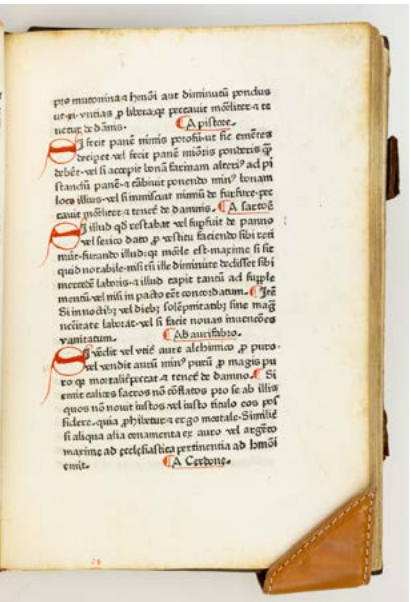 pro mutonina ⁊ hmōi aut diminutū pondus
ut·vi·vntias ꝓ libera: qꝛ peccauit mōliter ⁊ te
netur de dānis. ¶ A pistore.
Si fecit panē nimis porosū: ut sic emētes
deciꝑet vel fecit panē miōris ponderis ꝙ̄
debēt. vel si accepit bonā farinam alteriꝰ ad pi
standū panē. ⁊ cābiuit ponendo minꝰ bonam
loco illius. vel si immiscuit nimiū de furfure. pec
cauit mōliter ⁊ tenet̄ de damnis. ¶ A sartoē
Si illud qđ restabat vel supfuit de panno
vel serico dato ꝓ vestitu faciendo sibi reti
nuit. furando illud: qꝛ mōle est. maxime si fit
quid notabile. nisi tn̄ ille diminute dedisset sibi
mercedē laboris. ⁊ illud capit tantū ad supple
mentū. vel nisi in pacto eēt concordatum. ¶ Itē
Si in noctibꝫ vel diebꝫ solēpnitatibꝫ sine maḡ
necitate laborat. vel si facit nouas inuencōes
vanitatum. ¶ Ab aurifabro.
Si vēdit vel vtit̄ auro alchimico ꝓ puro.
vel vendit aurū minꝰ purū ꝓ magis pu
ro qꝛ mortalit̄ peccat. ⁊ tenet̄ de damno. ¶ Si
emit calices sacros nō cōflatos pro se ab illis
quos nō nouit iustos vel iusto titulo eos pos
sidere. quia ꝓhibetur. ⁊ ergo mortale. Similit̄
si aliqua alia ornamenta ex auro vel argēto
maxime ad ecclesiastica pertinentia ad hmōi
emit. ¶ A Cerdone.